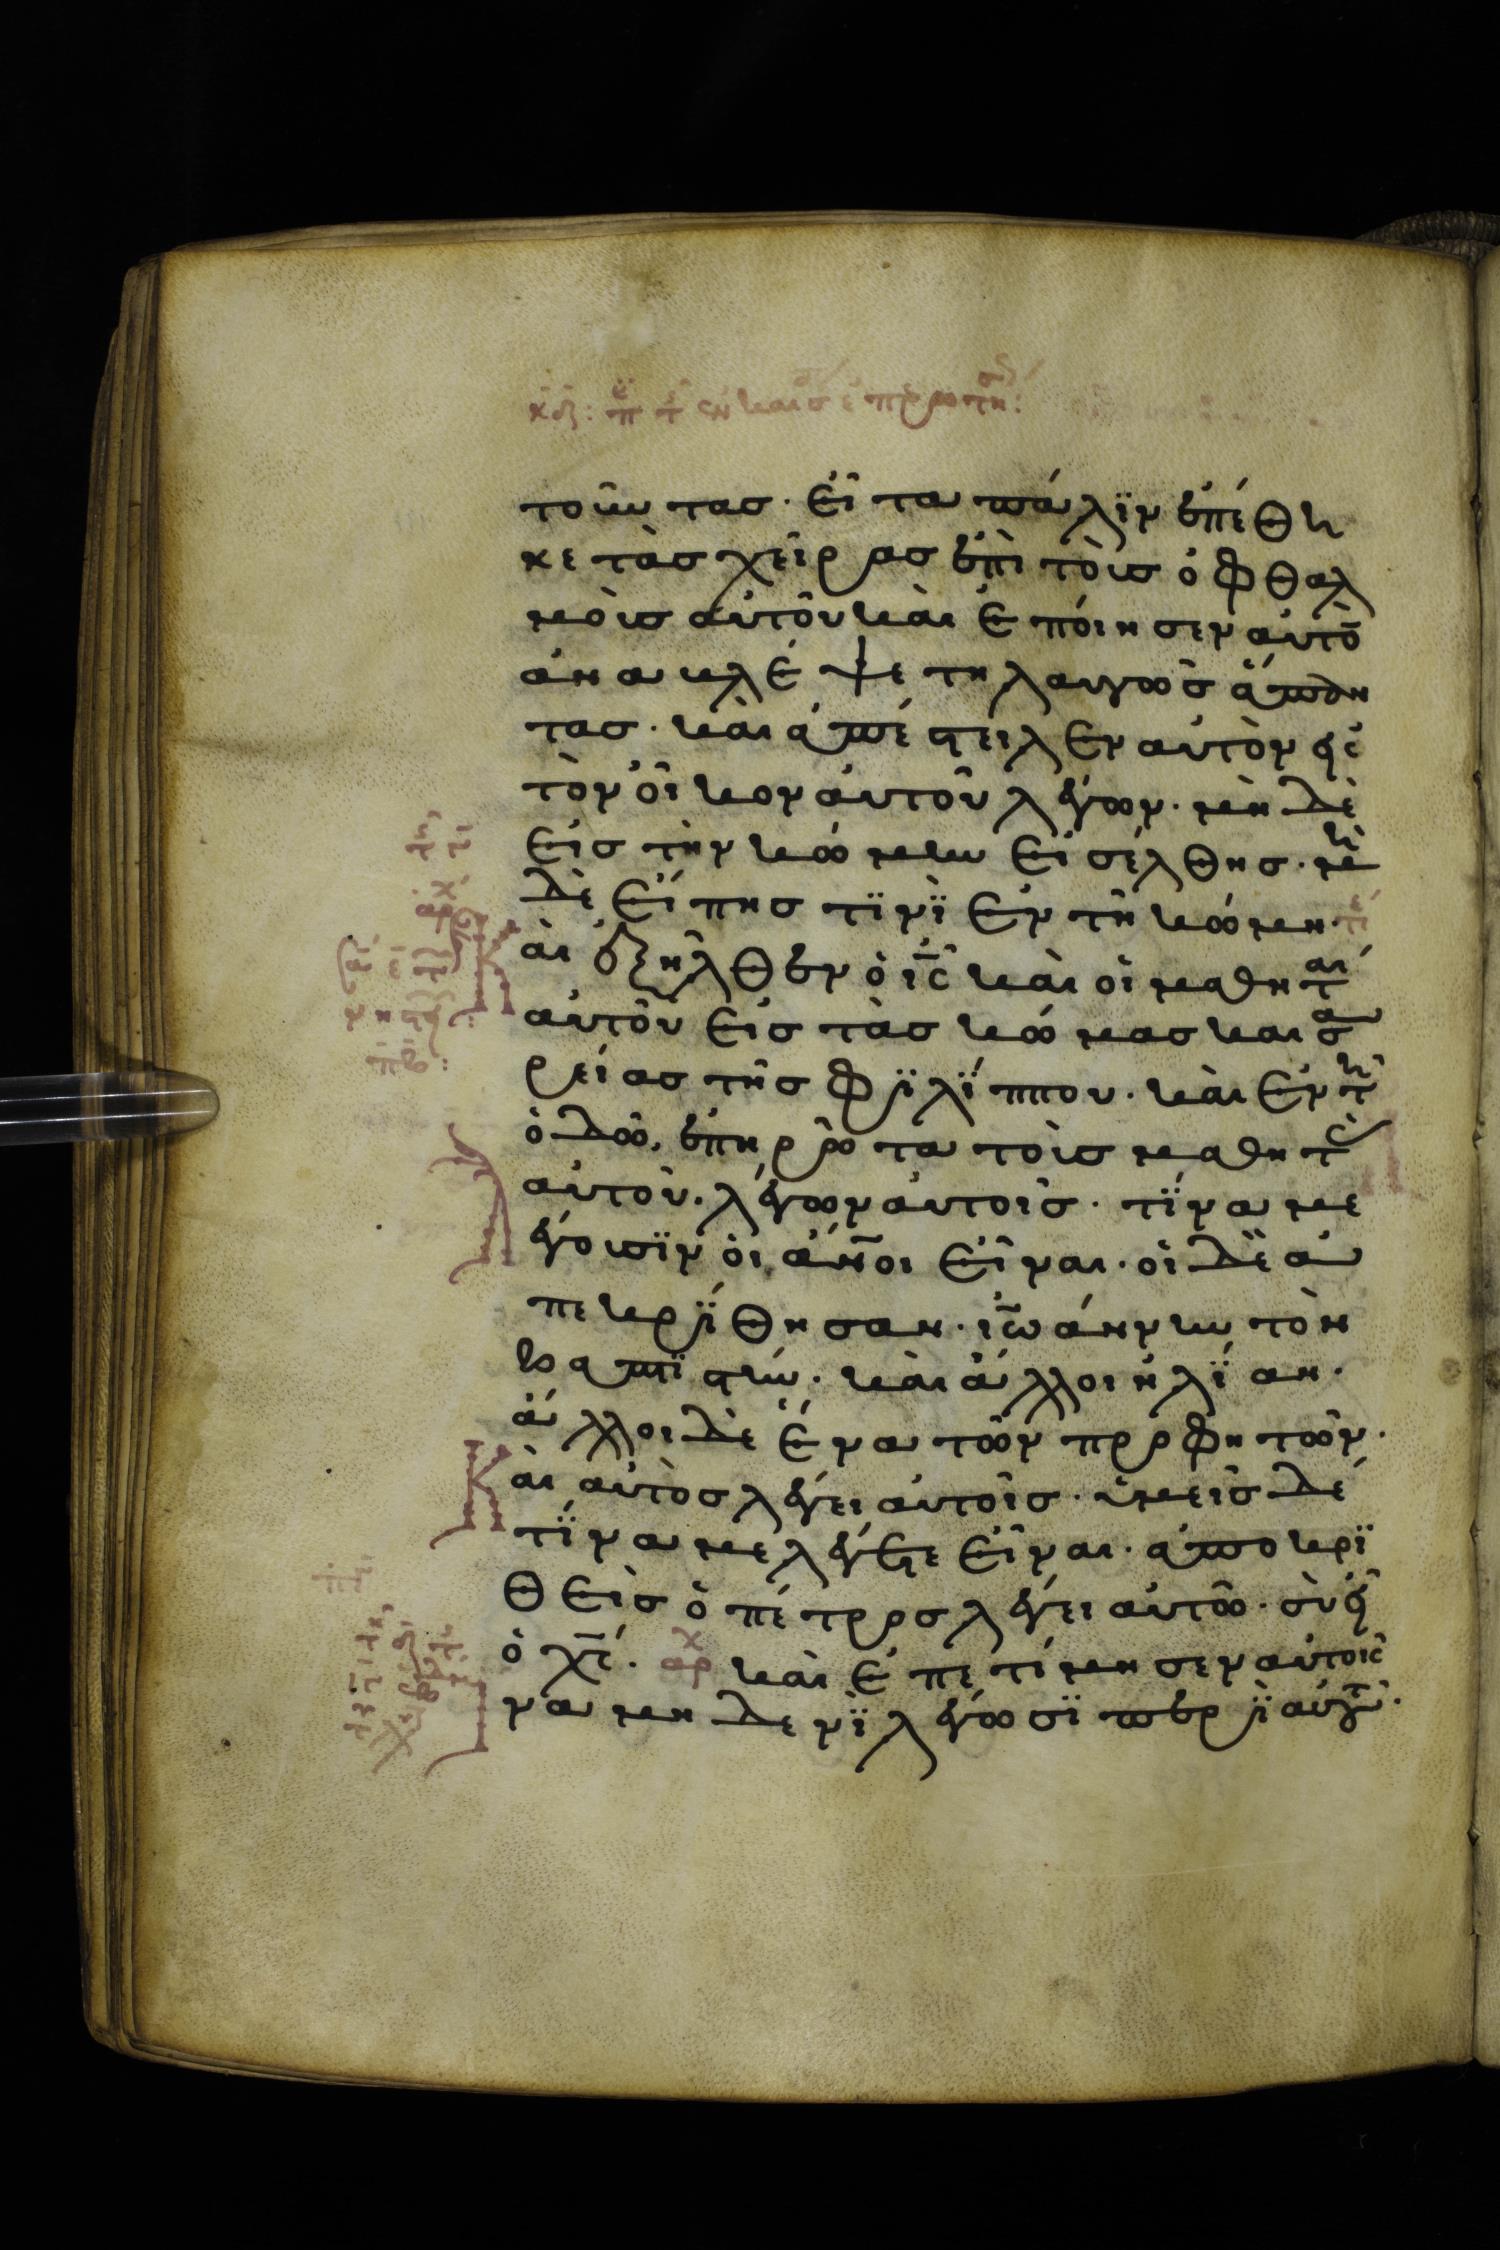 τοῦντας· εἶτα πάλϊν ἐπέθη
κε τὰς χεῖρας ἐπὶ τοὺς ὀφθαλ
μοὺς αὐτοῦ καὶ ἐποίησεν αὐτὸ
ἀναβλέψε τηλαυγῶς ἅπαν
τας· καὶ ἀπέστειλεν αὐτὸν εἰς
τὸν οἶκον αὐτοῦ λέγων· μὴ δὲ
εἰς τὴν κώμην εἰσέλθης· μὴ
δὲ εἴπης τϊνὶ ἐν τῆ κώμη· τέ
Καὶ ἐξῆλθεν ὁ ις καὶ οἱ μαθηται
αὐτοῦ εἰς τὰς κώμας καισα
ρείας τῆς φϊλίππου· καὶ ἐν τῆ
ὁδῶ, ἐπηρώτα τοὺς μαθητὰς
αὐτοῦ· λέγων αὐτοῖς· τίνα με
λέγουσϊν οἱ ἄνοι εἶναι· οἱ δὲ ἀ
πεκρίθησαν· ιω άννην τὸν
βαπτϊστήν· καὶ ἄλλοι ἠλίαν·
ἄλλοι δὲ ἕνα τῶν προφητῶν·
Καὶ αὐτὸς λέγει αὐτοῖς· ὑμεῖς δέ
τίνα με λέγετε εἶναι· ἀποκρϊ
θεὶς ὁ πέτρος λέγει αὐτῶ· σὺ εἶ
ὁ χς· αρχ καὶ ἐπετίμησεν αὐτοῖς
ἵνα μηδενὶ λέγωσϊ περὶ αὐτοῦ·